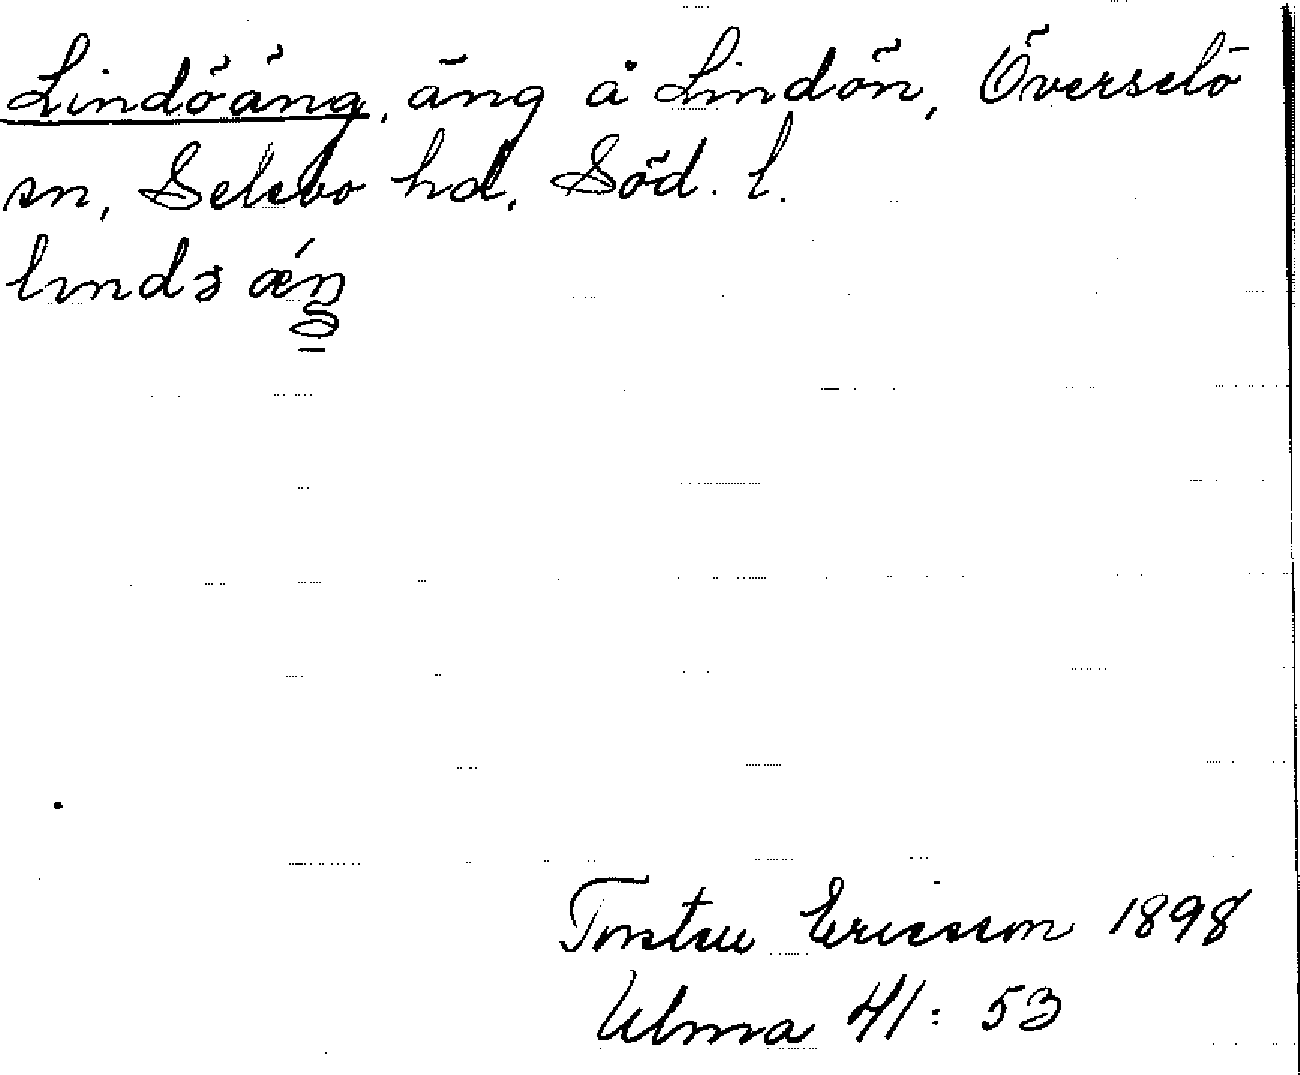 Lindöäng, äng å Lindön, Överselö
sn, Selebo hd, Söd. l.
lındɜ ǽŋ
Torsten Ericsson 1898
Ulma 41: 53